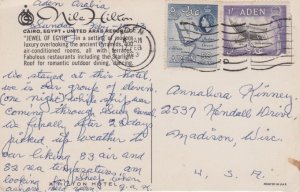 Aden Arabia
Nile Hilton
CAIRO, EGYPT • UNITED ARAB REPUBLIC
Sunday
"JEWEL OF EGYPT" in a setting of modern
luxury overlooking the ancient pyramids, and
air-conditioned rooms, all with terraces.
Fabulous restaurants including the Starlight
Roof for romantic outdoor dining, dancing.
ADEN
ADEN
We stayed at this hotel,
we our group of eleven
one night while ship was
coming through Suez canal
we finally, after 20 days
picked up weather to
our liking 83 air and
83 sea temperature am
looking
HILTON HOTEL
Annalora Kinney
2537 Kendall Drive
Madison, Wisc.
U, S. A.